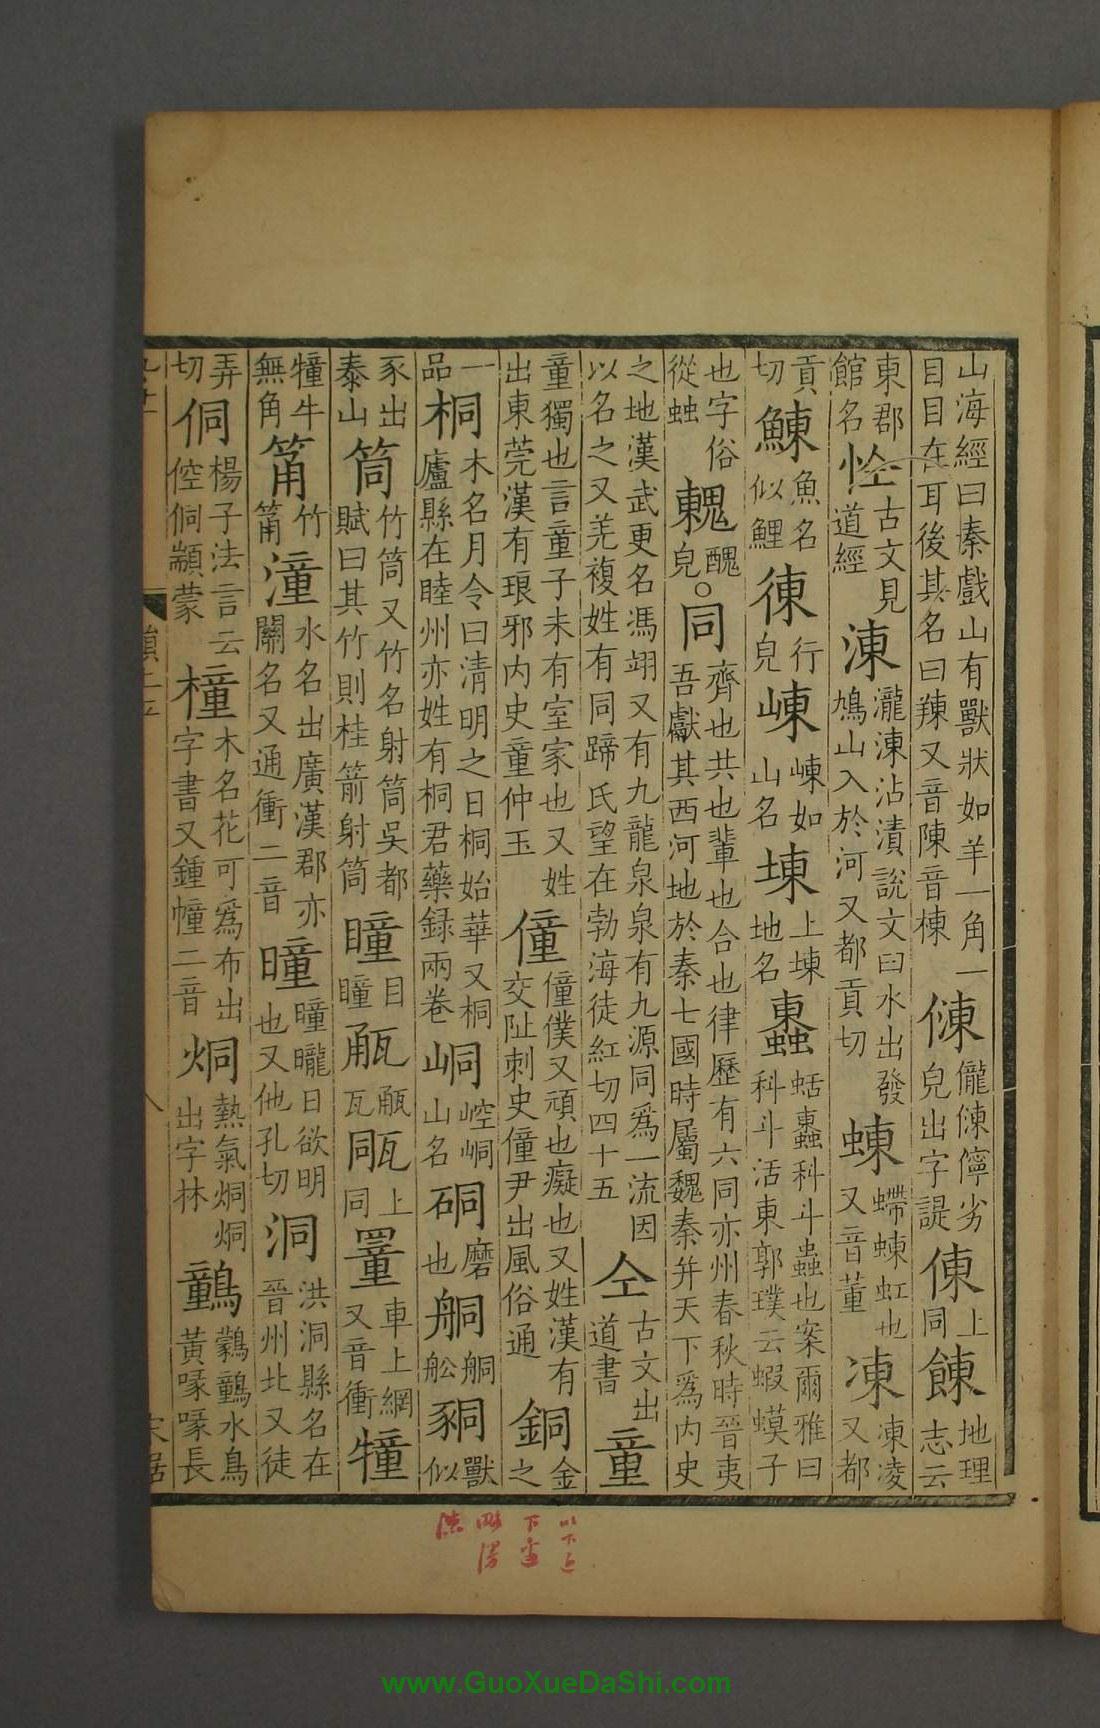 山海經曰秦戲山有獸狀如羊一角一目目在耳後其名曰辣又音陳音棟倲儱倲儜劣皃出字諟倲上同𩜍地理志云
東郡館名𢘐古文見道經涷瀧涷沾漬說文曰水出發鳩山入於河又都貢切蝀螮蝀虹也又音董凍凍凌又都
貢切鯟魚名似鯉𢔅行皃崠崠如山名埬上埬地名𧓕蛞𧓕科斗蟲也案爾雅曰科斗活東郭璞云蝦蟆子
也字俗從虫䰤醜皃○同齊也共也輩也合也律歷有六同亦州春秋時晉夷吾獻其西河地於秦七國時屬魏秦并天下爲内史
之地漢武更名馮翊又有九龍泉泉有九源同爲一流因以名之又羌複姓有同蹄氏望在勃海徒紅切四十五仝古文出道書童
童獨也言童子未有室家也又姓出東莞漢有琅邪内史童仲玉僮僮僕又頑也癡也又姓漢有交阯刺史僮尹出風俗通銅金之
一品桐木名月令曰清明之日桐始華又桐廬縣在睦州亦姓有桐君藥録兩卷峒崆峒山名硐磨也𦨴𦨴舩𧱁獸似
豕出泰山筒竹筒又竹名射筒吳都賦曰其竹則桂箭射筒瞳目瞳㼧㼧瓦㼿上同罿車上網又音衝犝
犝牛無角筩竹筩潼水名出廣漢郡亦關名又通衝二音曈曈曨日欲明也又他孔切洞洪洞縣名在晉州北又徒
弄切侗楊子法言云倥侗顓蒙橦木名花可爲布出字書又鍾幢二音烔熱氣烔烔出字林鷾䴀鸏䴀水鳥黃喙喙長